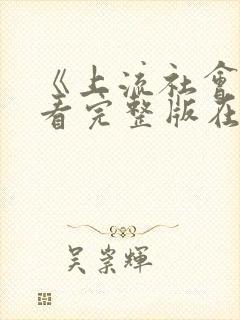 《上流社會
看完整版在
吳崇輝